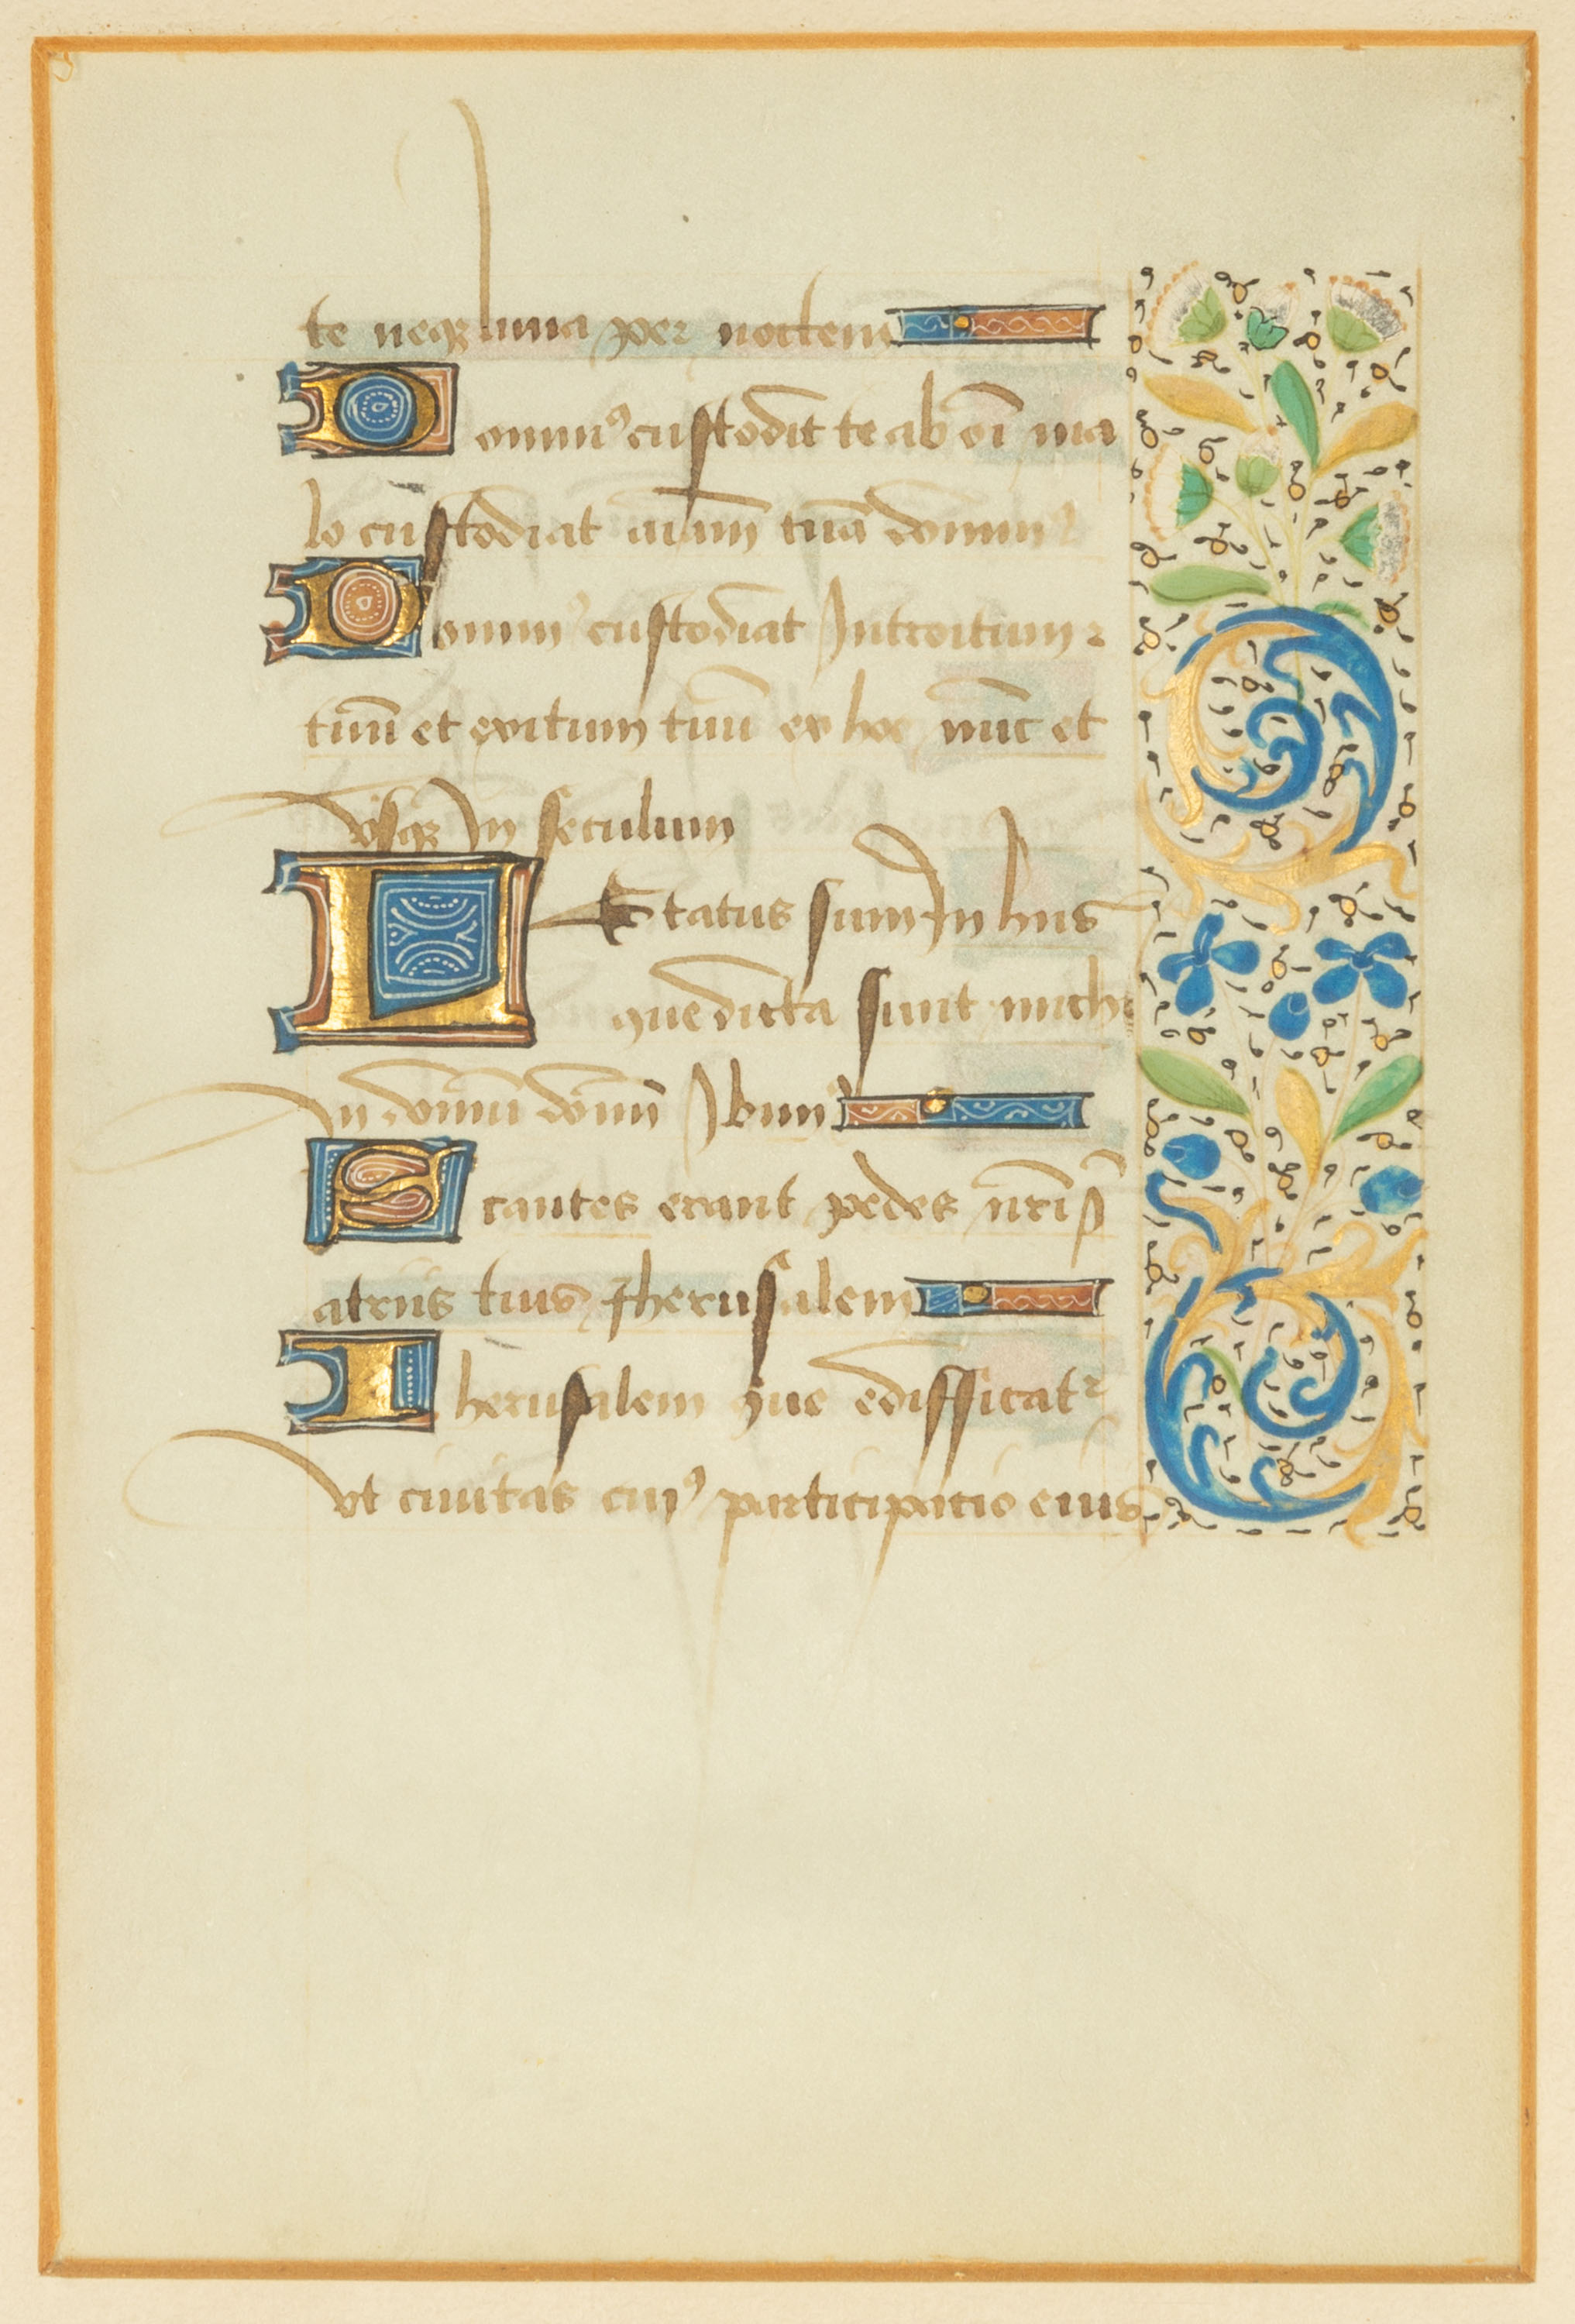 te neqꝫ luna per noctem
Dominꝰ custodit te ab oī ma
lo custodiat aīam tuā dominꝰ
Dominꝰ custodiat Introitum
tuū et exitum tuū ex hoc nūc et
vsqꝫ In seculum
LEtatus sum In hiis
que dicta sunt michi
In domū domī Ibimꝰ
Stantes erant pedes nrī
atriis tuis Iherusalem
Iherusalem que edifficatᷣ
vt ciuitas cuiꝰ participatio eius